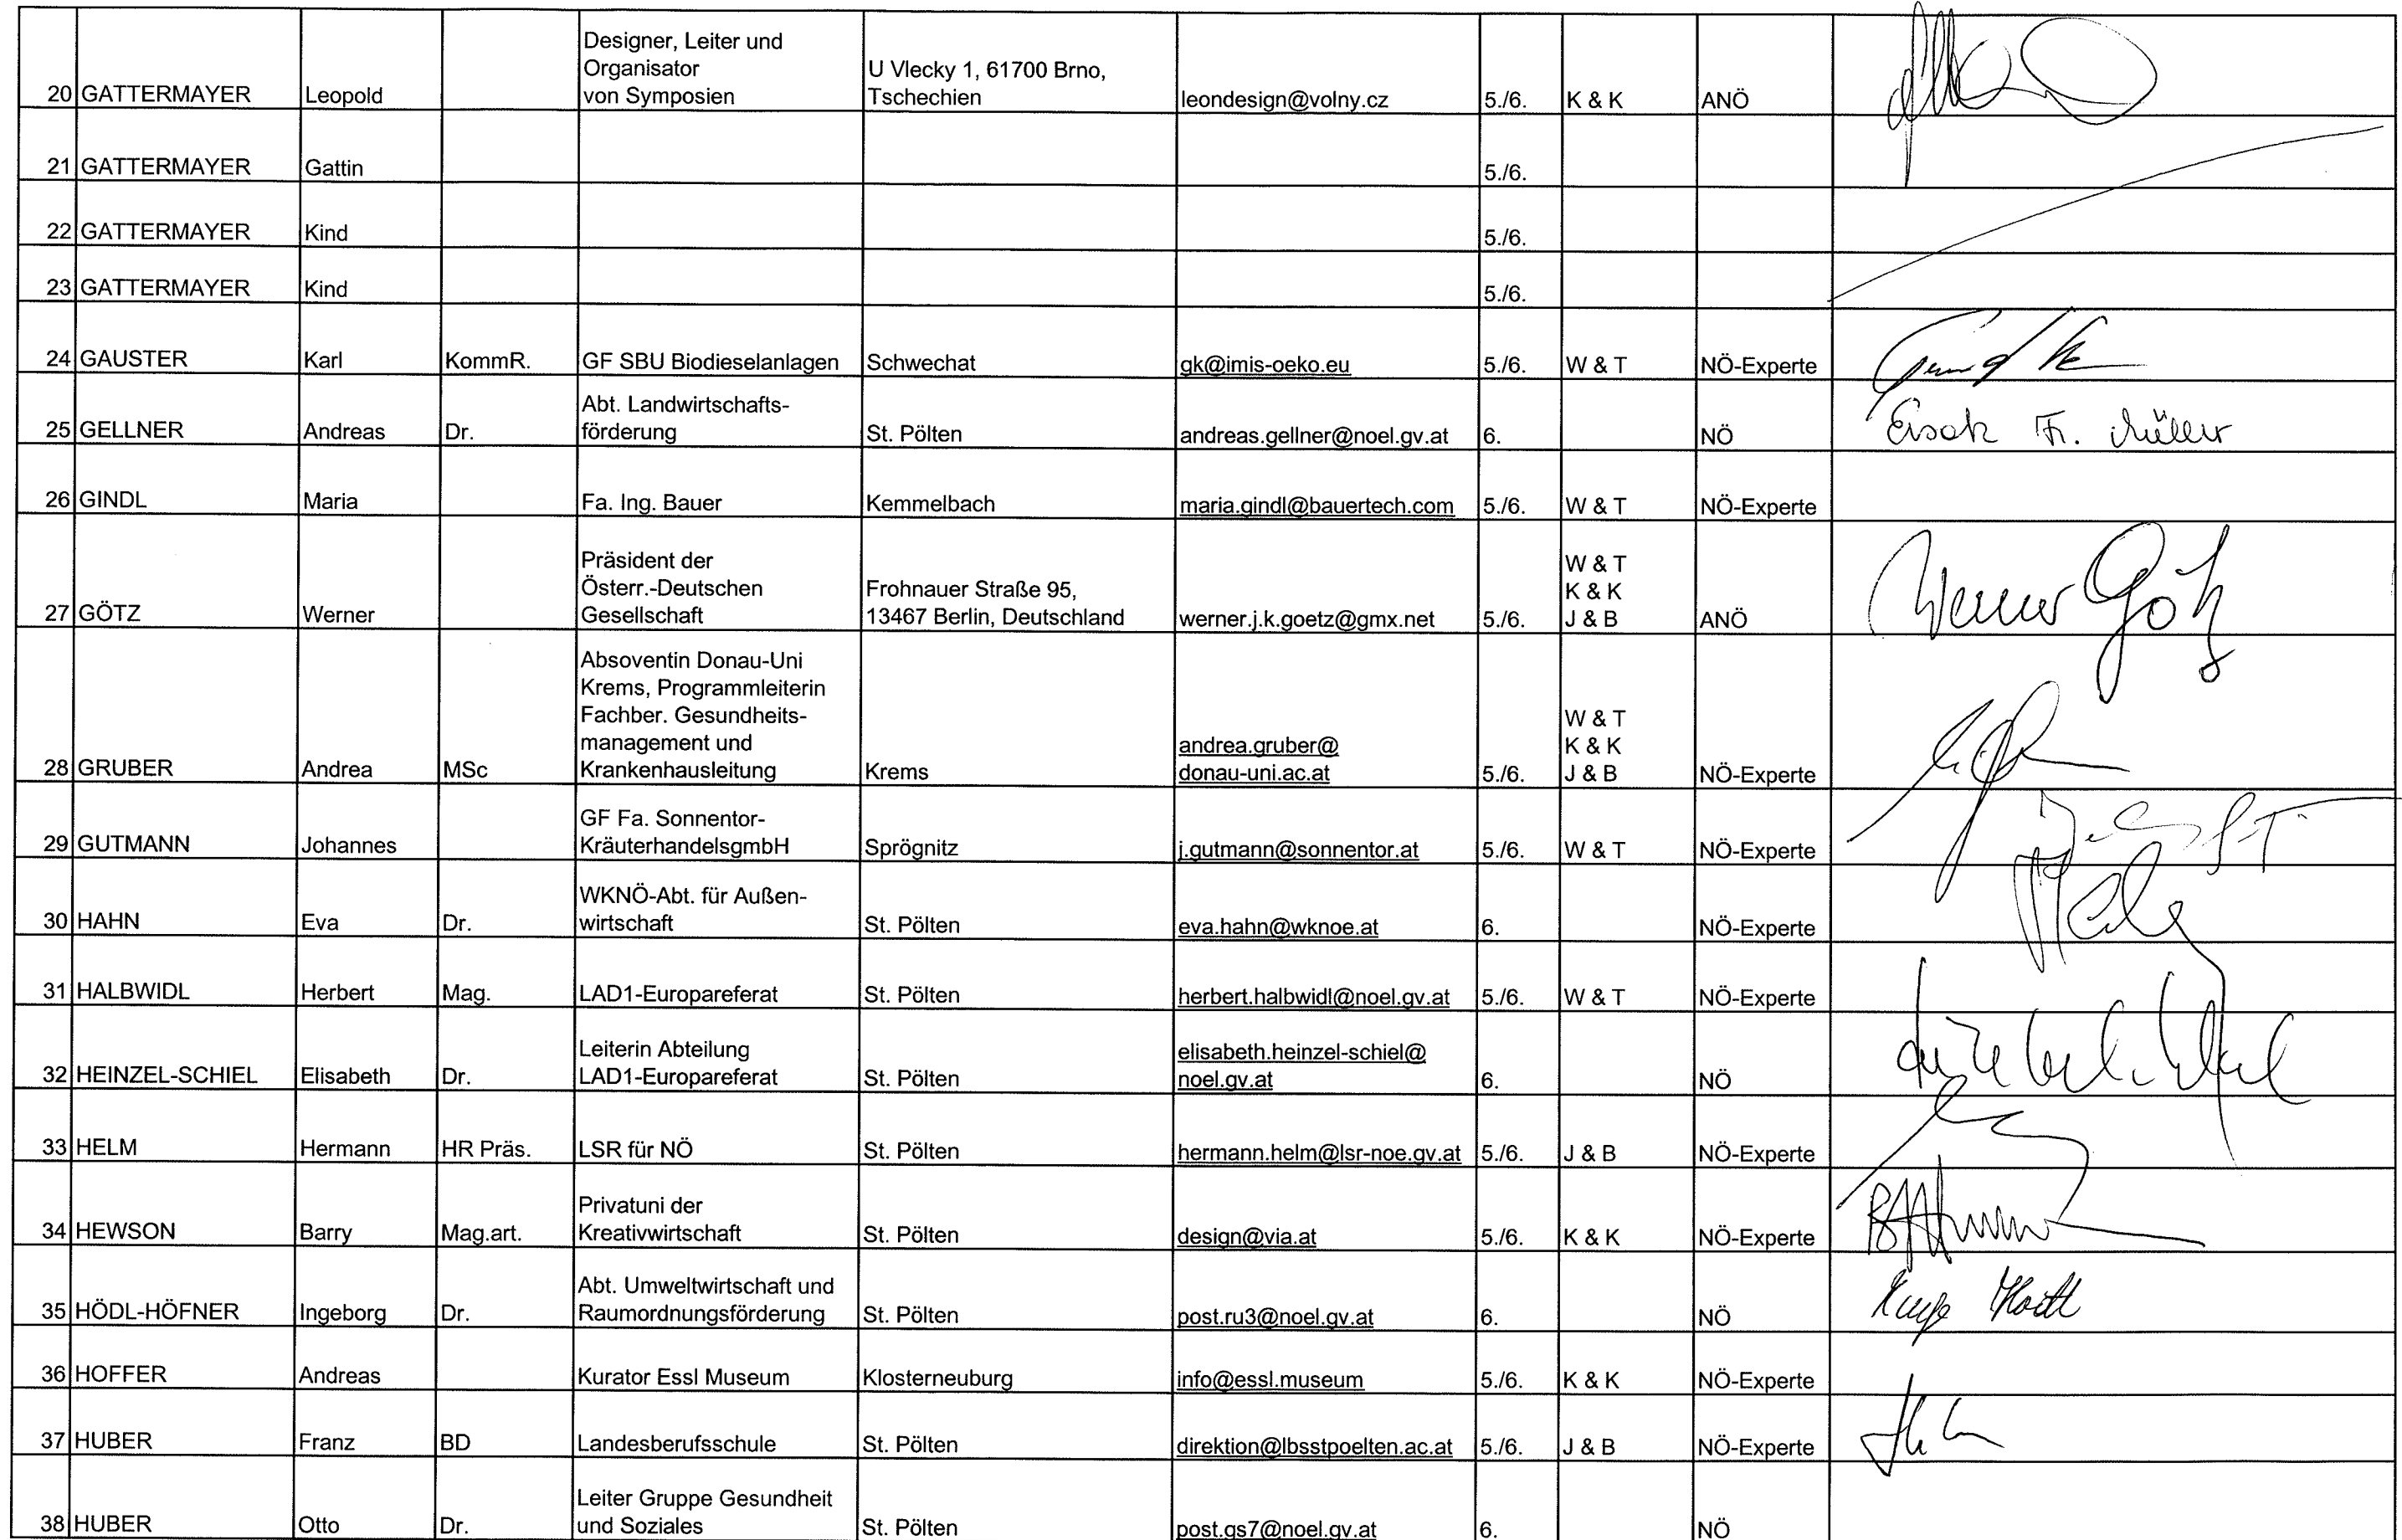 20 GATTERMAYER Leopold Designer, Leiter und Organisator von Symposien U Vlecky 1, 61700 Brno, Tschechien leondesign@volny.cz 5./6. K & K ANÖ
21 GATTERMAYER Gattin 5./6.
22 GATTERMAYER Kind 5./6.
23 GATTERMAYER Kind 5./6.
24 GAUSTER Karl KommR. GF SBU Biodieselanlagen Schwechat gk@imis-oeko.eu 5./6. W & T NÖ-Experte
25 GELLNER Andreas Dr. Abt. Landwirtschafts- förderung St. Pölten andreas.gellner@noel.gv.at 6. NÖ Ersatz Fr. Müller
26 GINDL Maria Fa. Ing. Bauer Kemmelbach maria.gindl@bauertech.com 5./6. W & T NÖ-Experte
27 GÖTZ Werner Präsident der Österr.-Deutschen Gesellschaft Frohnauer Straße 95, 13467 Berlin, Deutschland werner.j.k.goetz@gmx.net 5./6. W & T K & K J & B ANÖ Werner Götz
28 GRUBER Andrea MSc Absoventin Donau-Uni Krems, Programmleiterin Fachber. Gesundheits- management und Krankenhausleitung Krems andrea.gruber@ donau-uni.ac.at 5./6. W & T K & K J & B NÖ-Experte
29 GUTMANN Johannes GF Fa. Sonnentor- KräuterhandelsgmbH Sprögnitz j.gutmann@sonnentor.at 5./6. W & T NÖ-Experte
30 HAHN Eva Dr. WKNÖ-Abt. für Außen- wirtschaft St. Pölten eva.hahn@wknoe.at 6. NÖ-Experte
31 HALBWIDL Herbert Mag. LAD1-Europareferat St. Pölten herbert.halbwidl@noel.gv.at 5./6. W & T NÖ-Experte
32 HEINZEL-SCHIEL Elisabeth Dr. Leiterin Abteilung LAD1-Europareferat St. Pölten elisabeth.heinzel-schiel@ noel.gv.at 6. NÖ
33 HELM Hermann HR Präs. LSR für NÖ St. Pölten hermann.helm@lsr-noe.gv.at 5./6. J & B NÖ-Experte
34 HEWSON Barry Mag.art. Privatuni der Kreativwirtschaft St. Pölten design@via.at 5./6. K & K NÖ-Experte
35 HÖDL-HÖFNER Ingeborg Dr. Abt. Umweltwirtschaft und Raumordnungsförderung St. Pölten post.ru3@noel.gv.at 6. NÖ
36 HOFFER Andreas Kurator Essl Museum Klosterneuburg info@essl.museum 5./6. K & K NÖ-Experte
37 HUBER Franz BD Landesberufsschule St. Pölten direktion@lbsstpoelten.ac.at 5./6. J & B NÖ-Experte
38 HUBER Otto Dr. Leiter Gruppe Gesundheit und Soziales St. Pölten post.gs7@noel.gv.at 6. NÖ